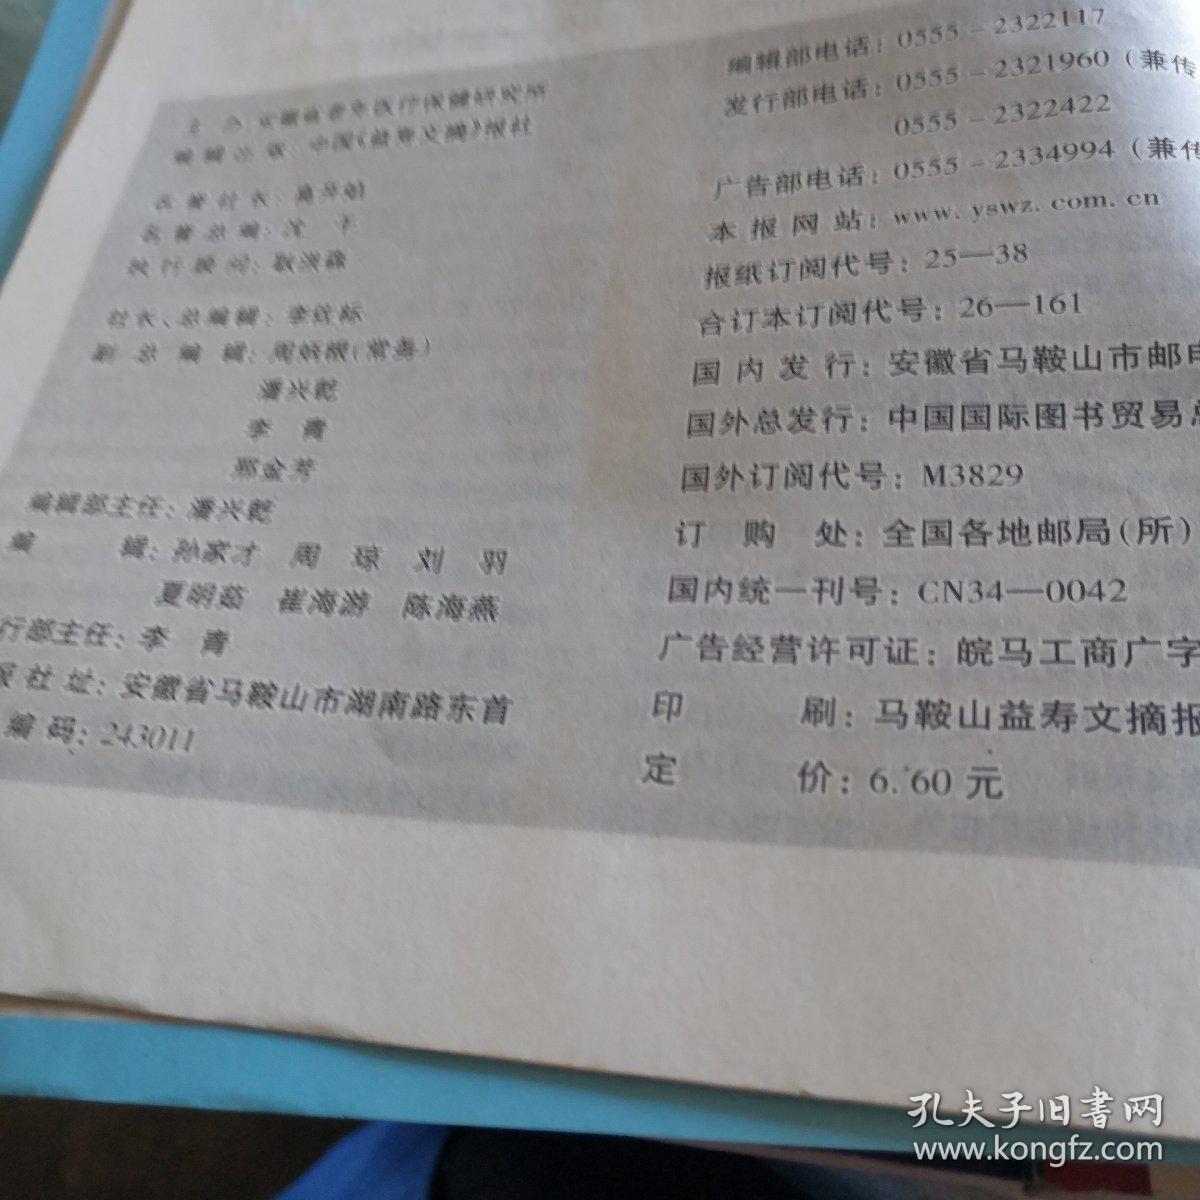 主 办:安徽省老年医疗保健研究所
编辑出版:中国《益寿文摘》报社
名誉社长:
名誉总编:沈 干
执行顾问:耿洪森
社长、总编辑:李效际
副总编辑:周(常务)
潘兴乾
李 青
邢金芳
编辑部主任:潘兴乾
编 辑:孙家才 周 琼 刘 羽
夏明茹 崔海游 陈海燕
行部主任:李 青
报社址:安徽省马鞍山市湖南路东首
编码:243011
编辑部电话:0555-2322117
发行部电话:0555-2321960(兼传
0555-2322422
广告部电话:0555-2334994(兼传
本报网站:www.yswz.com.cn
报纸订阅代号:25—38
合订本订阅代号:26—161
国内发行:安徽省马鞍山市邮电
国外总发行:中国国际图书贸易总
国外订阅代号:M3829
订 购 处:全国各地邮局(所)
国内统一刊号:CN34—0042
广告经营许可证:皖马工商广字
印 刷:马鞍山益寿文摘报
定 价:6.60元
孔夫子旧书网
www.kongfz.com